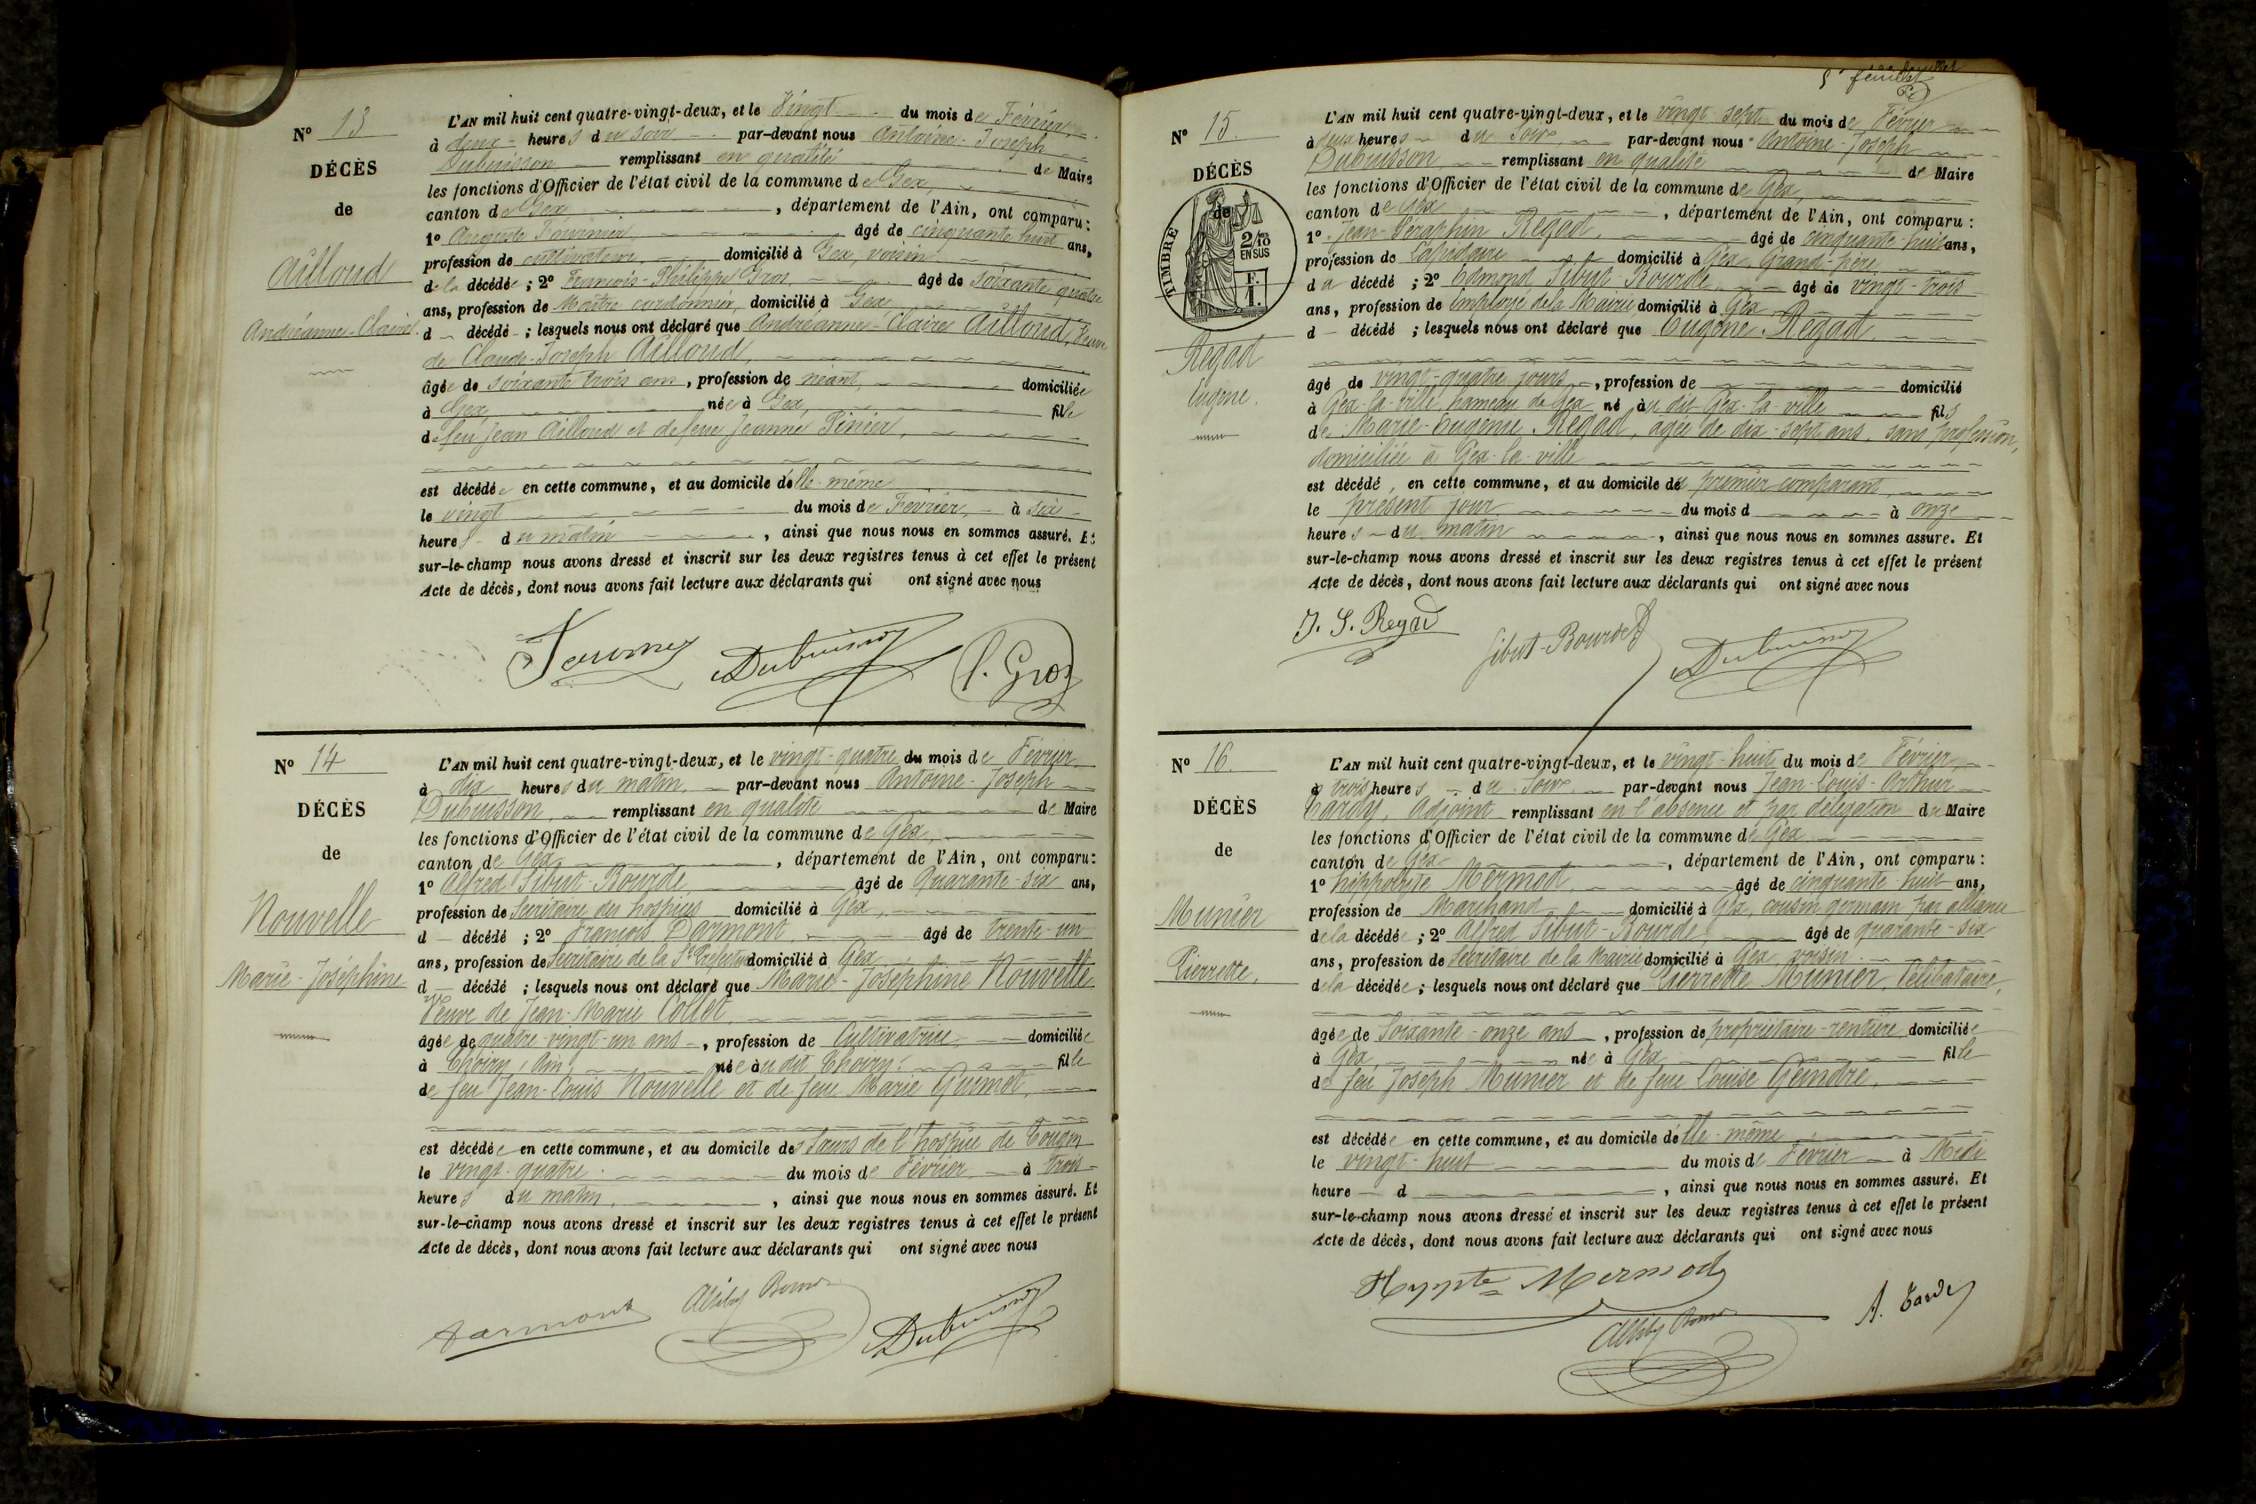 N° 13
DÉCÈS
de
Ailloud
Andréanne-Claire
L'AN mil huit cent quatre-vingt-deux, et le Vingt du mois de Février,
à deux heures du soir par-devant nous Antoine-Joseph
Dubuisson remplissant en qualité de Maire
les fonctions d'Officier de l'état civil de la commune de Gex,
canton de Gex, département de l'Ain, ont comparu :
1° Auguste Fournier, âgé de cinquante huit ans,
profession de cultivateur, domicilié à Gex, voisin
de la décédée ; 2° François-Philippe Gros, âgé de soixante quatre
ans, profession de Maître cordonnier, domicilié à Gex
d décédé ; lesquels nous ont déclaré que Andréanne-Claire Ailloud, Veuve
de Claude-Joseph Ailloud,
âgée de soixante trois ans, profession de néant, domiciliée
à Gex, née à Gex, fille
de feu Jean Ailloud et de feue Jeanne
est décédée en cette commune, et au domicile d'elle-même
le vingt du mois de Février, à six
heures du matin, ainsi que nous nous en sommes assuré. Et
sur-le-champ nous avons dressé et inscrit sur les deux registres tenus à cet effet le présent
Acte de décès, dont nous avons fait lecture aux déclarants qui ont signé avec nous
Dubuisson
P. Gros
N° 14
DÉCÈS
de
Nouvelle
Marie-Joséphine
L'AN mil huit cent quatre-vingt-deux, et le vingt-quatre du mois de Février
à dix heures du matin, par-devant nous Antoine-Joseph
Dubuisson, remplissant en qualité de Maire
les fonctions d'Officier de l'état civil de la commune de Gex,
canton de Gex, département de l'Ain, ont comparu :
1° Alfred Sibut-Bourde, âgé de Quarante-six ans,
profession de Secrétaire des hospices domicilié à Gex,
d décédé ; 2° François Darmont, âgé de trente-un
ans, profession de Secrétaire de la Ss Préfecture domicilié à Gex
d décédé ; lesquels nous ont déclaré que Marie-Joséphine Nouvelle
Veuve de Jean-Marie Collet,
âgée de quatre-vingt-un ans, profession de Cultivatrice domiciliée
à Thoiry, Ain, née au dit Thoiry, fille
de feu Jean-Louis Nouvelle et de feue Marie Guimet,
est décédée en cette commune, et au domicile des Sœurs de l'hospice de Tougin
le vingt-quatre du mois de Février à trois
heures du matin, ainsi que nous nous en sommes assuré. Et
sur-le-champ nous avons dressé et inscrit sur les deux registres tenus à cet effet le présent
Acte de décès, dont nous avons fait lecture aux déclarants qui ont signé avec nous
Darmont
Dubuisson
5e feuillet
N° 15
DÉCÈS
de
TIMBRE
2/10
EN SUS
F.
1.
Regad
Eugène.
L'AN mil huit cent quatre-vingt-deux, et le vingt-sept du mois de Février
à deux heures du Soir, par-devant nous Antoine-Joseph
Dubuisson remplissant en qualité de Maire
les fonctions d'Officier de l'état civil de la commune de Gex,
canton de Gex, département de l'Ain, ont comparu :
1° Jean-Séraphin Regad, âgé de cinquante-huit ans,
profession de Lapidaire domicilié à Gex, Grand-père
du décédé ; 2° Edmond Sibut-Bourde, âgé de vingt-trois
ans, profession de employé de la Mairie domicilié à Gex
d décédé ; lesquels nous ont déclaré que Eugène Regad,
âgé de vingt-quatre jours, profession de domicilié
à Gex-la-ville, hameau de Gex né au dit Gex-la-ville fils
de Marie-Eugénie Regad, âgée de dix-sept ans, sans profession,
domiciliée à Gex-la-ville
est décédé, en cette commune, et au domicile du premier comparant,
le présent jour, du mois d à onze
heures du matin, ainsi que nous nous en sommes assuré. Et
sur-le-champ nous avons dressé et inscrit sur les deux registres tenus à cet effet le présent
Acte de décès, dont nous avons fait lecture aux déclarants qui ont signé avec nous
J. S. Regad
Sibut-Bourde
Dubuisson
N° 16.
DÉCÈS
de
Munier
Pierrette,
L'AN mil huit cent quatre-vingt-deux, et le vingt-huit du mois de Février,
à trois heures du Soir, par-devant nous Jean-Louis-Arthur
Tardy, Adjoint remplissant en l'absence et par délégation du Maire
les fonctions d'Officier de l'état civil de la commune de Gex
canton de Gex, département de l'Ain, ont comparu :
1° hippolyte Mermod, âgé de cinquante-huit ans,
profession de Marchand domicilié à Gex, cousin germain par alliance
de la décédée ; 2° Alfred Sibut-Bourde, âgé de quarante-six
ans, profession de Secrétaire de la Mairie, domicilié à Gex, voisin
de la décédée ; lesquels nous ont déclaré que Pierrette Munier, Célibataire,
âgée de Soixante-onze ans, profession de propriétaire-rentière domiciliée
à Gex née à Gex fille
de feu Joseph Munier et de feue Louise Gendre,
est décédée en cette commune, et au domicile d'elle-même
le vingt-huit du mois de Février à Midi
heure d, ainsi que nous nous en sommes assuré. Et
sur-le-champ nous avons dressé et inscrit sur les deux registres tenus à cet effet le présent
Acte de décès, dont nous avons fait lecture aux déclarants qui ont signé avec nous
Hyppte Mermod
A. Tardy